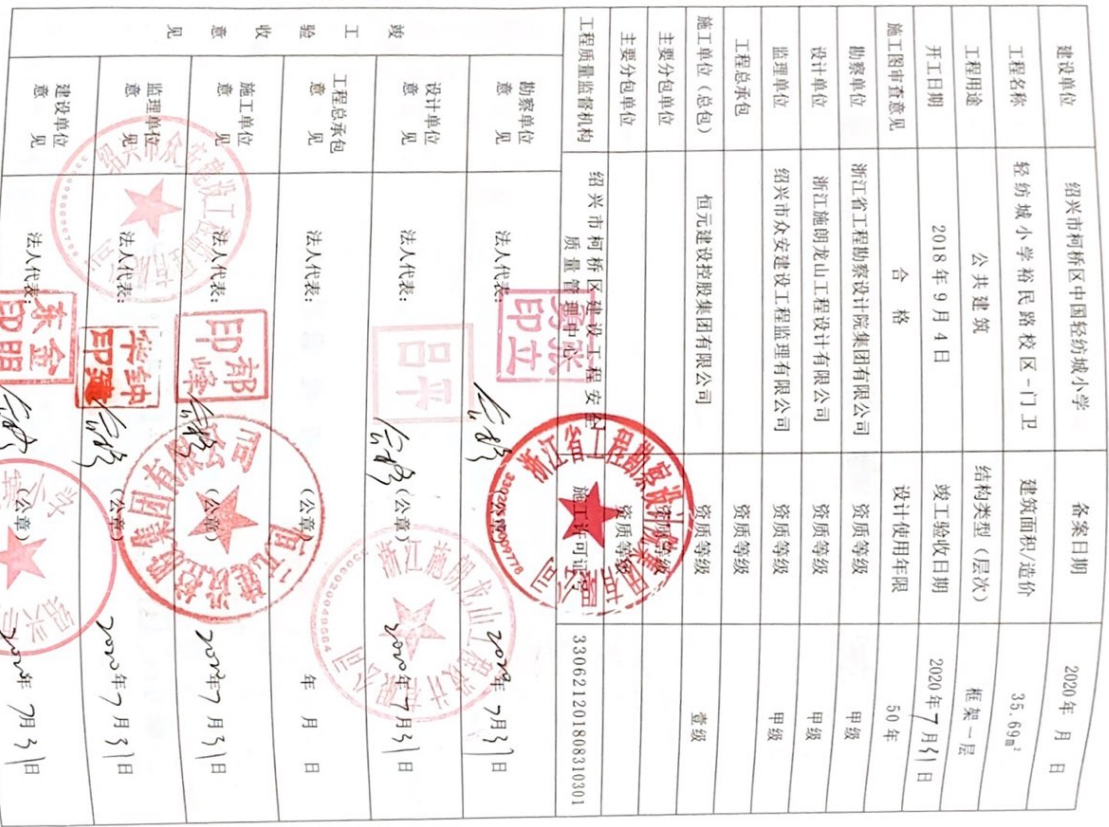 建设单位 绍兴市柯桥区中国轻纺城小学 备案日期 2020年 月 日
工程名称 轻纺城小学裕民路校区-门卫 建筑面积/造价 35.69m²
工程用途 公共建筑 结构类型（层次） 框架一层
开工日期 2018年9月4日 竣工验收日期 2020年7月31日
施工图审查意见 合格 设计使用年限 50年
勘察单位 浙江省工程勘察设计院集团有限公司 资质等级 甲级
设计单位 浙江施朗龙山工程设计有限公司 资质等级 甲级
监理单位 绍兴市众安建设工程监理有限公司 资质等级 甲级
工程总承包 资质等级
施工单位（总包） 恒元建设控股集团有限公司 资质等级 壹级
主要分包单位 资质等级
主要分包单位 资质等级
工程质量监督机构 绍兴市柯桥区建设工程安全
质量管理中心 施工许可证号 330621201808310301
竣工验收意见
勘察单位
意见 法人代表： 2020年7月31日
设计单位
意见 法人代表： 吕平 合格（公章） 2020年7月31日
工程总承包
意见 法人代表： （公章） 年 月 日
施工单位
意见 法人代表： 郁峰印 合格（公章） 2020年7月31日
监理单位
意见 法人代表： 合格（公章） 2020年7月31日
建设单位
意见 法人代表： 合格（公章） 2020年7月31日
浙江省工程勘察设计院集团有限公司
浙江施朗龙山工程设计有限公司
恒元建设控股集团有限公司